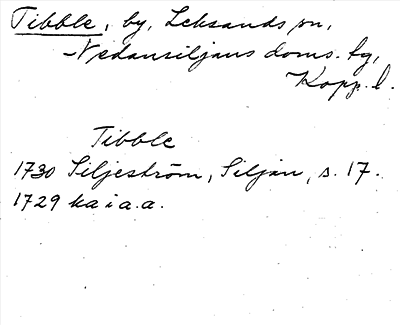 Tibble, by, Leksands sn,
Nedansiljans doms. tg,
Kopp. l.
Tibble
1730 Siljeström, Siljan, s. 17.
1729 ka i a.a.